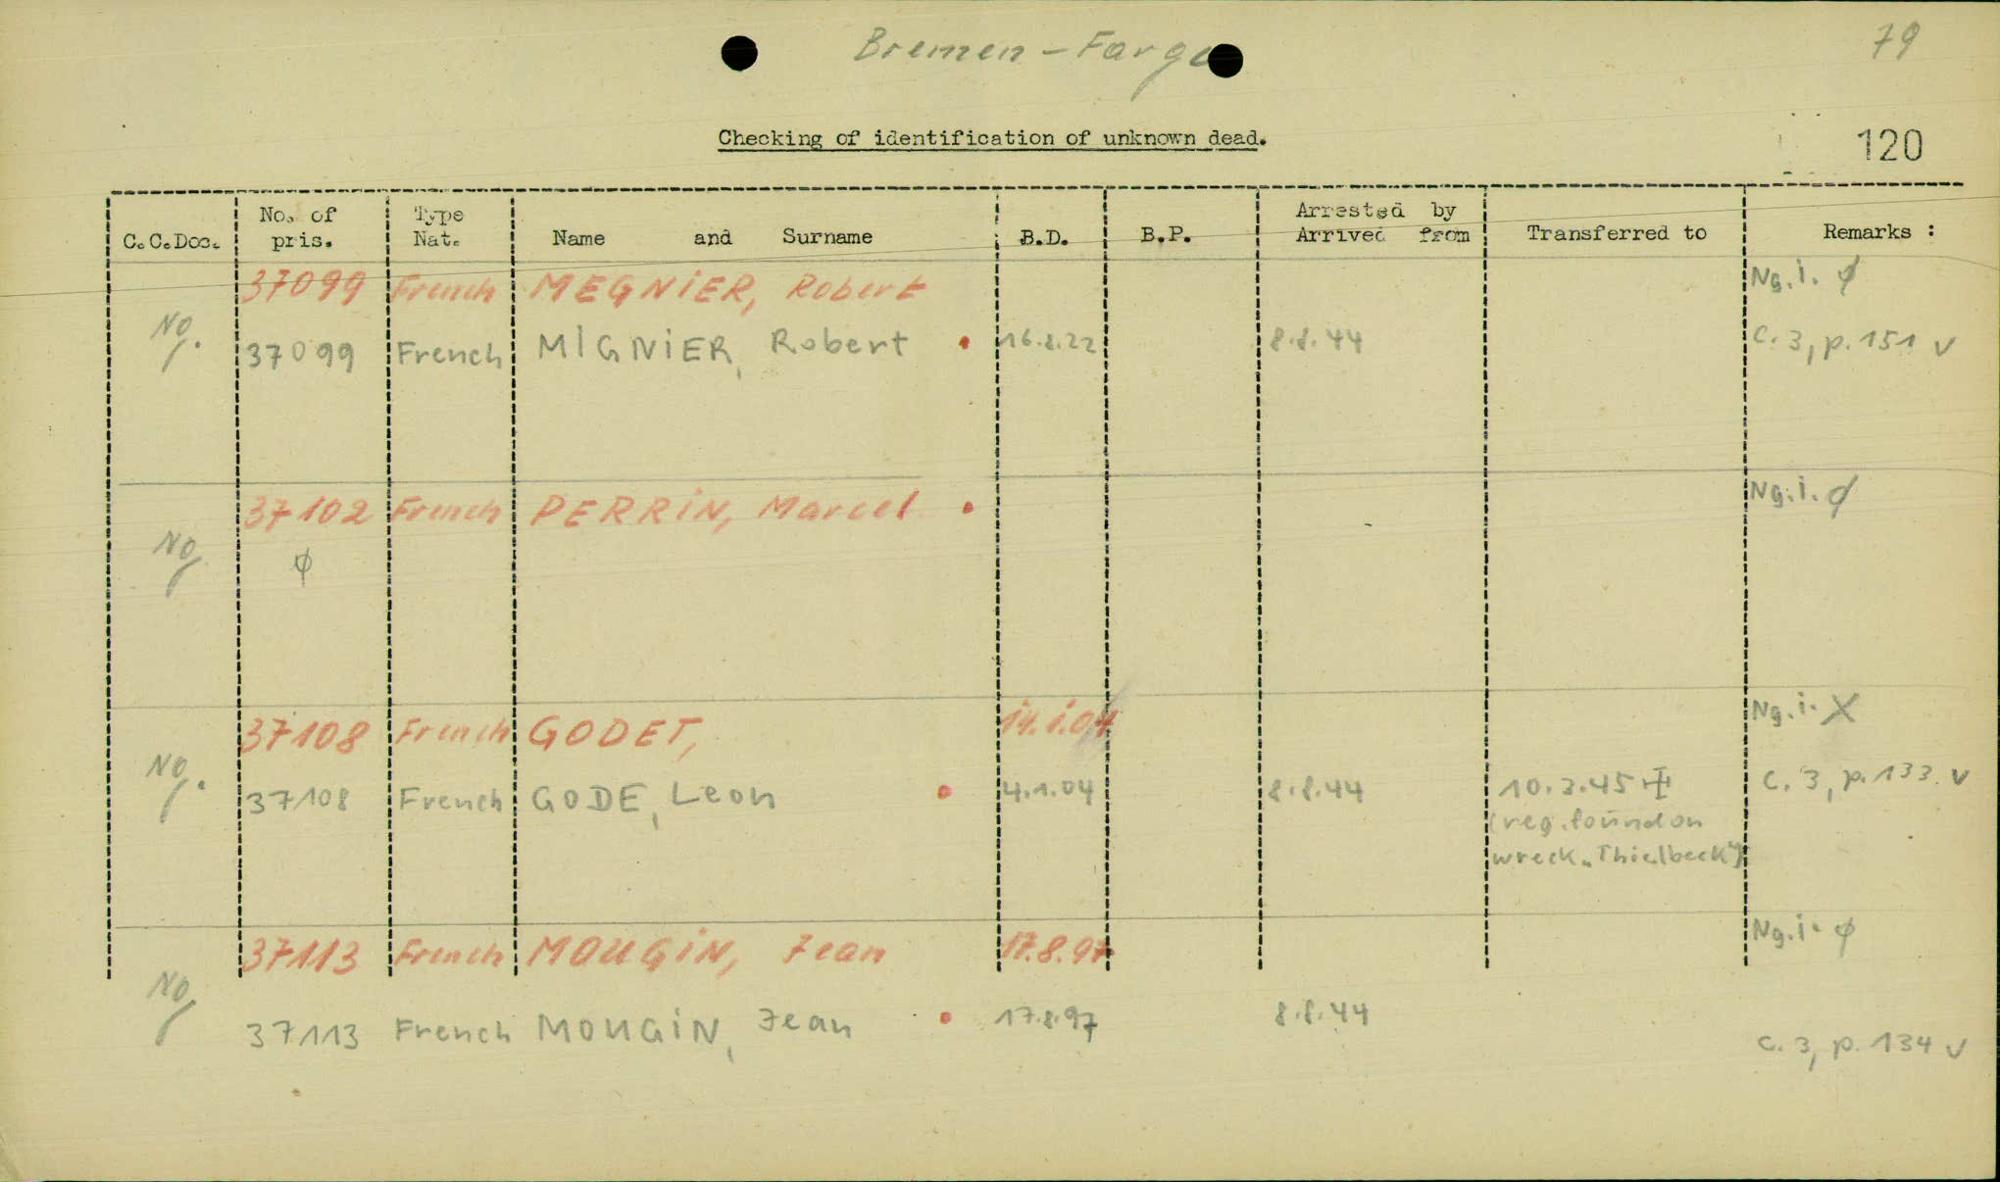 Bremen - Farge
79
Checking of identification of unknown dead.
120
C.C.Doc. No. of pris. Type Nat. Name and Surname B.D. B.P. Arrested by Arrived from Transferred to Remarks :
37099 French MEGNIER, Robert Ng.i. ∅
Ng. 37099 French MIGNIER, Robert • 16.8.22 8.8.44 C. 3, p. 151 v
37102 French PERRIN, Marcel • Ng.i. ∅
Ng ∅
37108 French GODET, 14.1.04 Ng.i. X
Ng. 37108 French GODE, Leon • 4.1.04 8.8.44 10.3.45 ☩ C. 3, p. 133. v
(reg. found on
wreck „Thielbeck")
37113 French MOUGIN, Jean 17.8.97 Ng.i. ∅
Ng 37113 French MOUGIN, Jean • 17.8.97 8.8.44 C. 3, p. 134 v